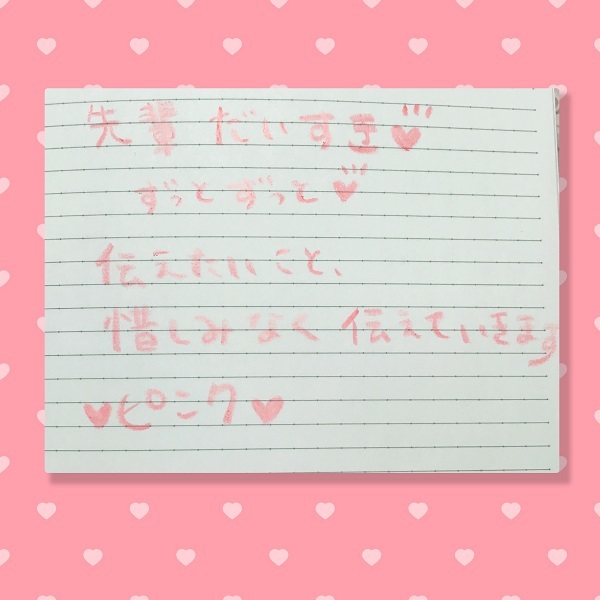 先輩 だいすき♥
ずっと ずっと♥
伝えたいこと、
惜しみなく 伝えていきます
♥ピンク♥